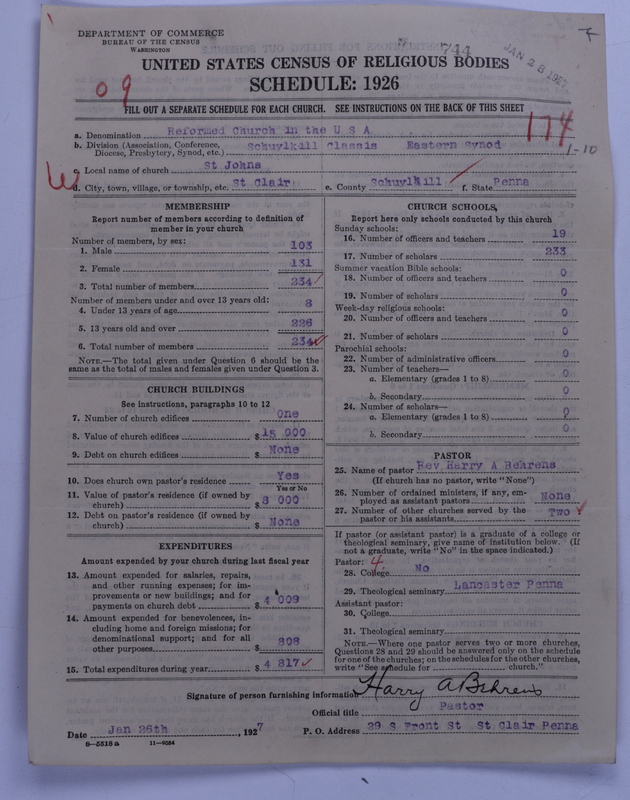 DEPARTMENT OF COMMERCE
BUREAU OF THE CENSUS
WASHINGTON
744
JAN 28 1927
UNITED STATES CENSUS OF RELIGIOUS BODIES
SCHEDULE: 1926
09
FILL OUT A SEPARATE SCHEDULE FOR EACH CHURCH. SEE INSTRUCTIONS ON THE BACK OF THIS SHEET
174
1-10
a. Denomination Reformed Church in the U S A
b. Division (Association, Conference, Diocese, Presbytery, Synod, etc.) Schuylkill Classis Eastern Synod
c. Local name of church St Johns
W
d. City, town, village, or township, etc. St Clair e. County Schuylkill f. State Penna
MEMBERSHIP
Report number of members according to definition of
member in your church
Number of members, by sex:
1. Male 103
2. Female 131
3. Total number of members 234
Number of members under and over 13 years old:
4. Under 13 years of age 8
5. 13 years old and over 226
6. Total number of members 234
NOTE.—The total given under Question 6 should be the
same as the total of males and females given under Question 3.
CHURCH BUILDINGS
See instructions, paragraphs 10 to 12
7. Number of church edifices One
8. Value of church edifices $ 15 000
9. Debt on church edifices $ None
10. Does church own pastor's residence Yes
Yes or No
11. Value of pastor's residence (if owned by
church) $ 8 000
12. Debt on pastor's residence (if owned by
church) $ None
EXPENDITURES
Amount expended by your church during last fiscal year
13. Amount expended for salaries, repairs,
and other running expenses; for im-
provements or new buildings; and for
payments on church debt $ 4 009
14. Amount expended for benevolences, in-
cluding home and foreign missions; for
denominational support; and for all
other purposes $ 808
15. Total expenditures during year $ 4 817
CHURCH SCHOOLS,
Report here only schools conducted by this church
Sunday schools:
16. Number of officers and teachers 19
17. Number of scholars 233
Summer vacation Bible schools:
18. Number of officers and teachers 0
19. Number of scholars 0
Week-day religious schools:
20. Number of officers and teachers 0
21. Number of scholars 0
Parochial schools:
22. Number of administrative officers 0
23. Number of teachers—
a. Elementary (grades 1 to 8) 0
b. Secondary 0
24. Number of scholars—
a. Elementary (grades 1 to 8) 0
b. Secondary 0
PASTOR
25. Name of pastor Rev Harry A Behrens
(If church has no pastor, write "None")
26. Number of ordained ministers, if any, em-
ployed as assistant pastors None
27. Number of other churches served by the
pastor or his assistants Two
If pastor (or assistant pastor) is a graduate of a college or
theological seminary, give name of institution below. (If
not a graduate, write "No" in the space indicated.)
Pastor: 4
28. College No
29. Theological seminary Lancaster Penna
Assistant pastor:
30. College
31. Theological seminary
NOTE.—Where one pastor serves two or more churches,
Questions 28 and 29 should be answered only on the schedule
for one of the churches; on the schedules for the other churches,
write "See schedule for church."
Signature of person furnishing information Harry A Behrens
Official title Pastor
Date Jan 26th, 1927 P. O. Address 29 S Front St St Clair Penna
8—5518 a 11—9054